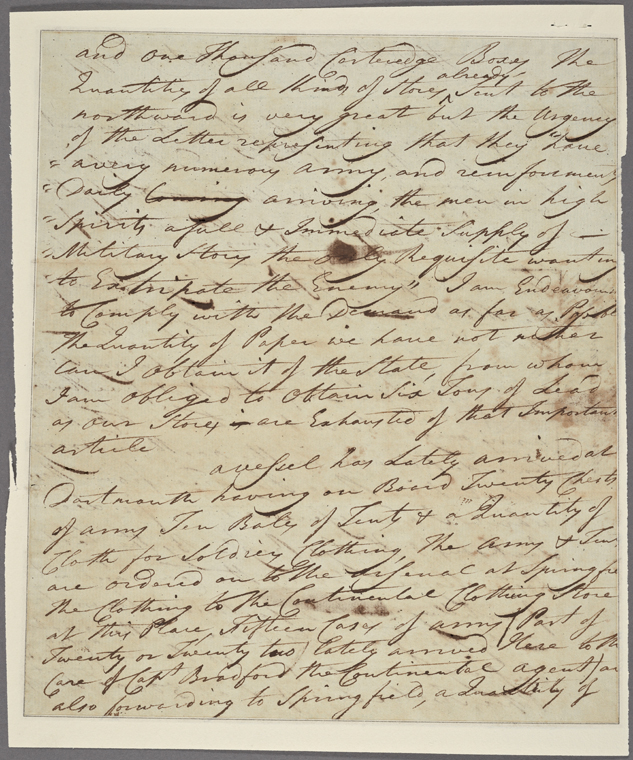 and one Thousand Carteredge Boxes The
Quantitys of all kinds of Stores already Sent to the
northward is very great but the Urgency
of the Letter representing that they "have
"a very numerous army, and reinforcments
"Daily Coming arriving, the men in high
"Spirits a full & Immediate Supply of —
"Military Stores the only Requisite wanting
to Extripate the Enemy", I am Endeavour
to Comply with the Demand as far as
the Quantity of Paper we have not neither
Can I obtain it of the State, from whom
I am obliged to obtain Six Tons of Lead
as our Stores is are Exhausted of that Important
article
a vessel has Lately arrived at
Dartmouth having on Board Twenty Chests
of arms Ten Bales of Tents & a Quantity of
Cloth for Soldiers Clothing, The Arms & Tents
are ordered on to the Arsenal at Springfie
the Clothing to the Continental Clothing Store
at this Place, Fifteen Cases of arms (Part of
Twenty or Twenty two) lately arrived Here to the
Care of Capt Bradford the Continental agent) ar
also forwarding to Springfield, a Quantity of